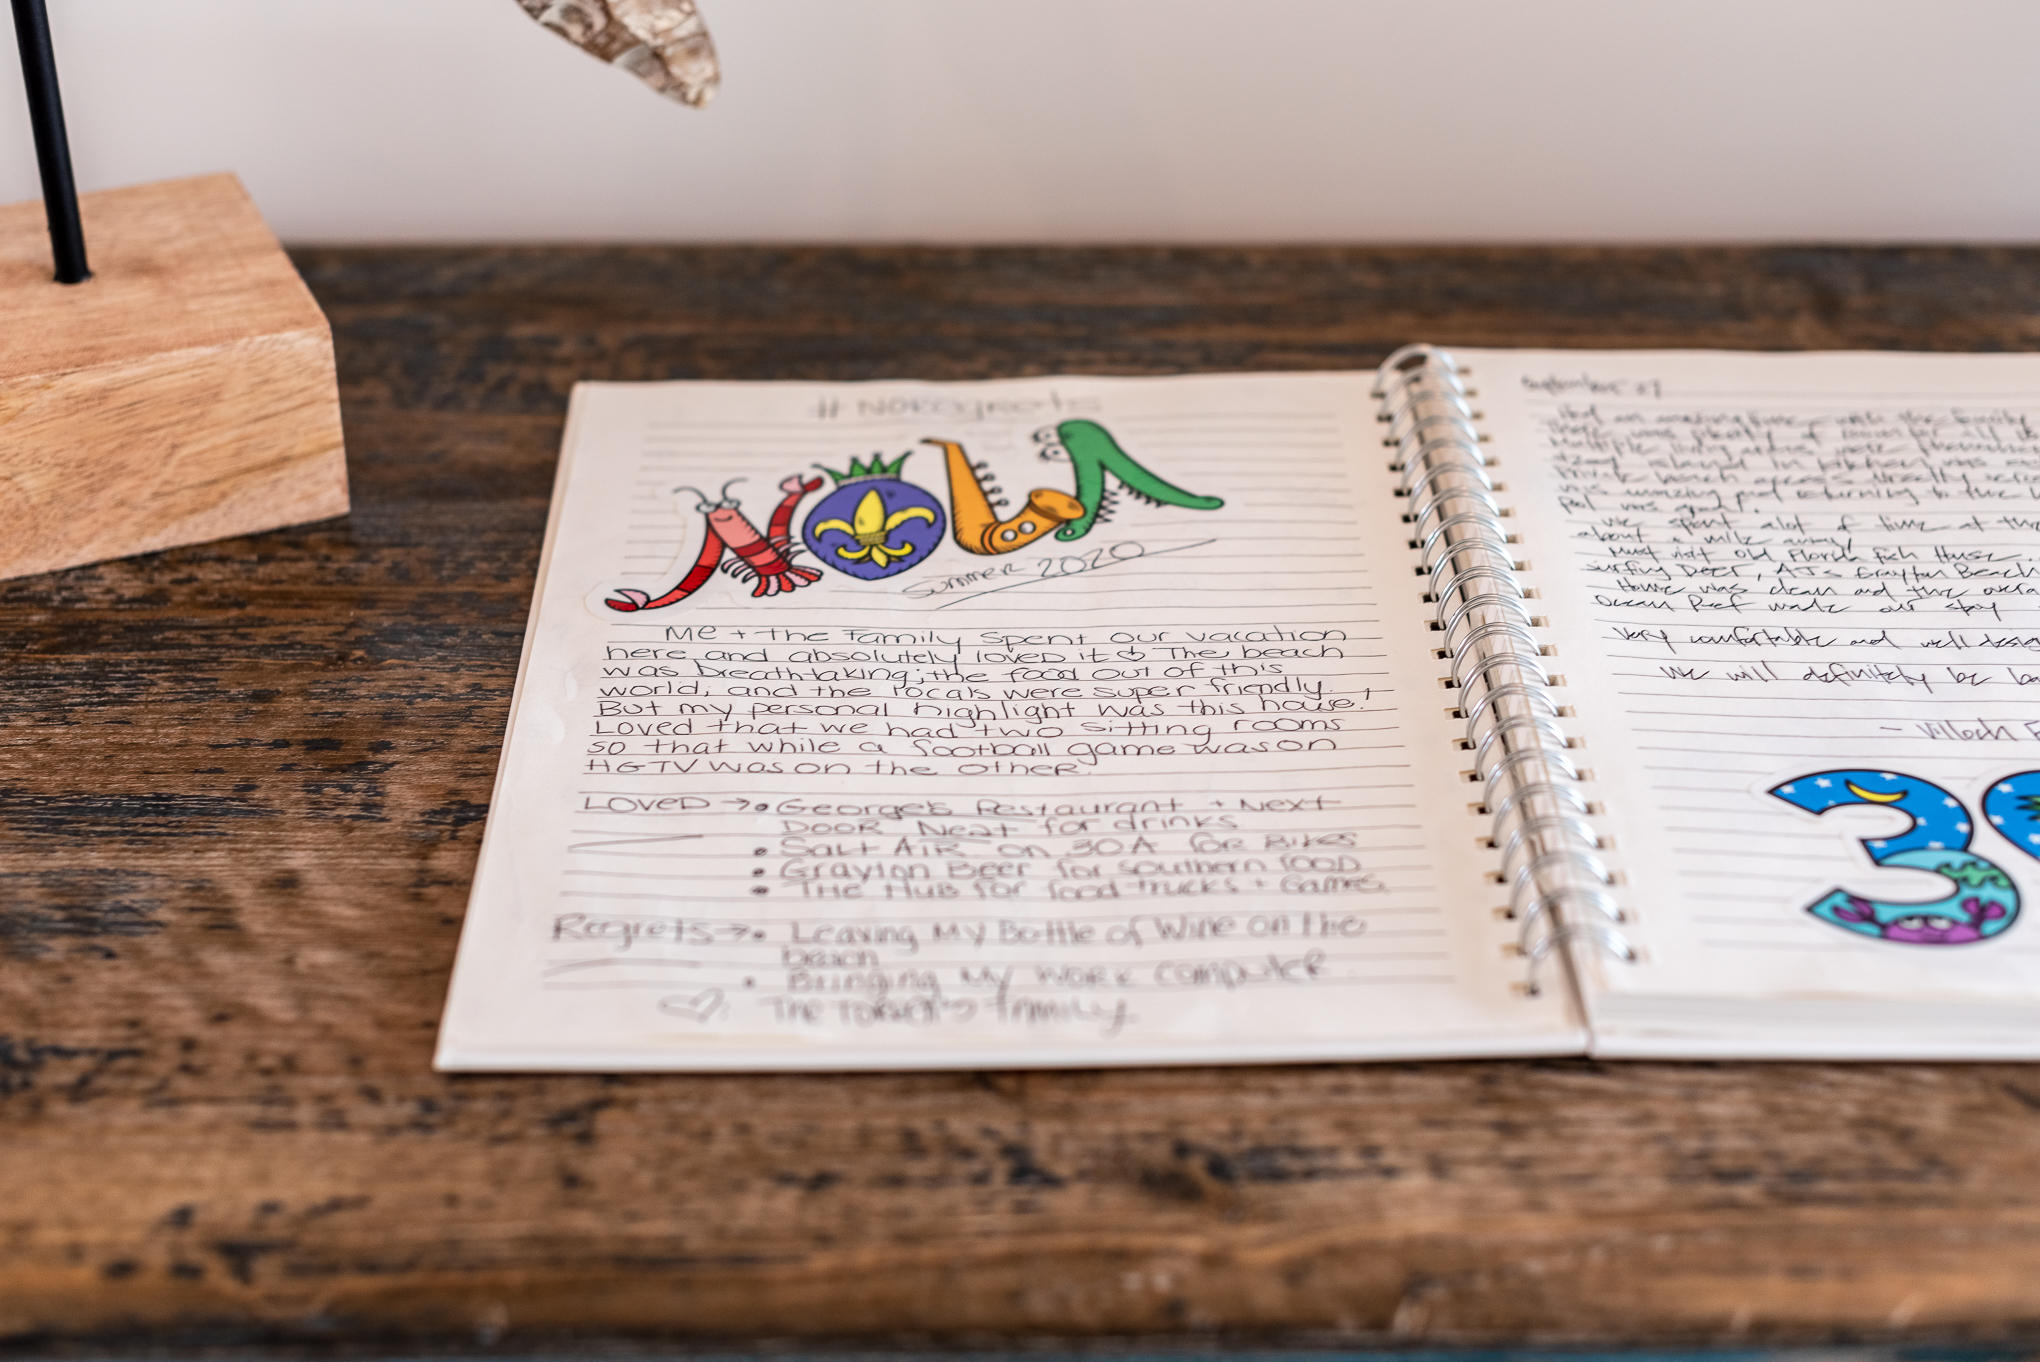 #Noregrets
NOLA
Summer 2020
Me + the Family spent our vacation
here and absolutely loved it The beach
was breathtaking, the food out of this
world, and the locals were super friendly.
But my personal highlight was this house!
Loved that we had two sitting rooms
so that while a football game was on
HGTV was on the other.
Loved → • George's Restaurant + Next
Door Neat for drinks
• Salt Air on 30A for Bikes
• Grayton Beer for southern food
• The Hub for food trucks + Games.
Regrets → • Leaving My Bottle of Wine on the
beach
• Bringing My work computer
The Family
September 27
Had an amazing time with the family
There was plenty of room for all
Multiple living areas were
island in kitchen was
beach access directly
was amazing and returning to the
Pool was great!
We spent alot of time at the
about a mile away!
Must visit Old Florida Fish House,
Surfing Deer, AJs Grayton Beach
Home was clean and the
Ocean Reef made our stay
Very comfortable and well
We will definitely be
3